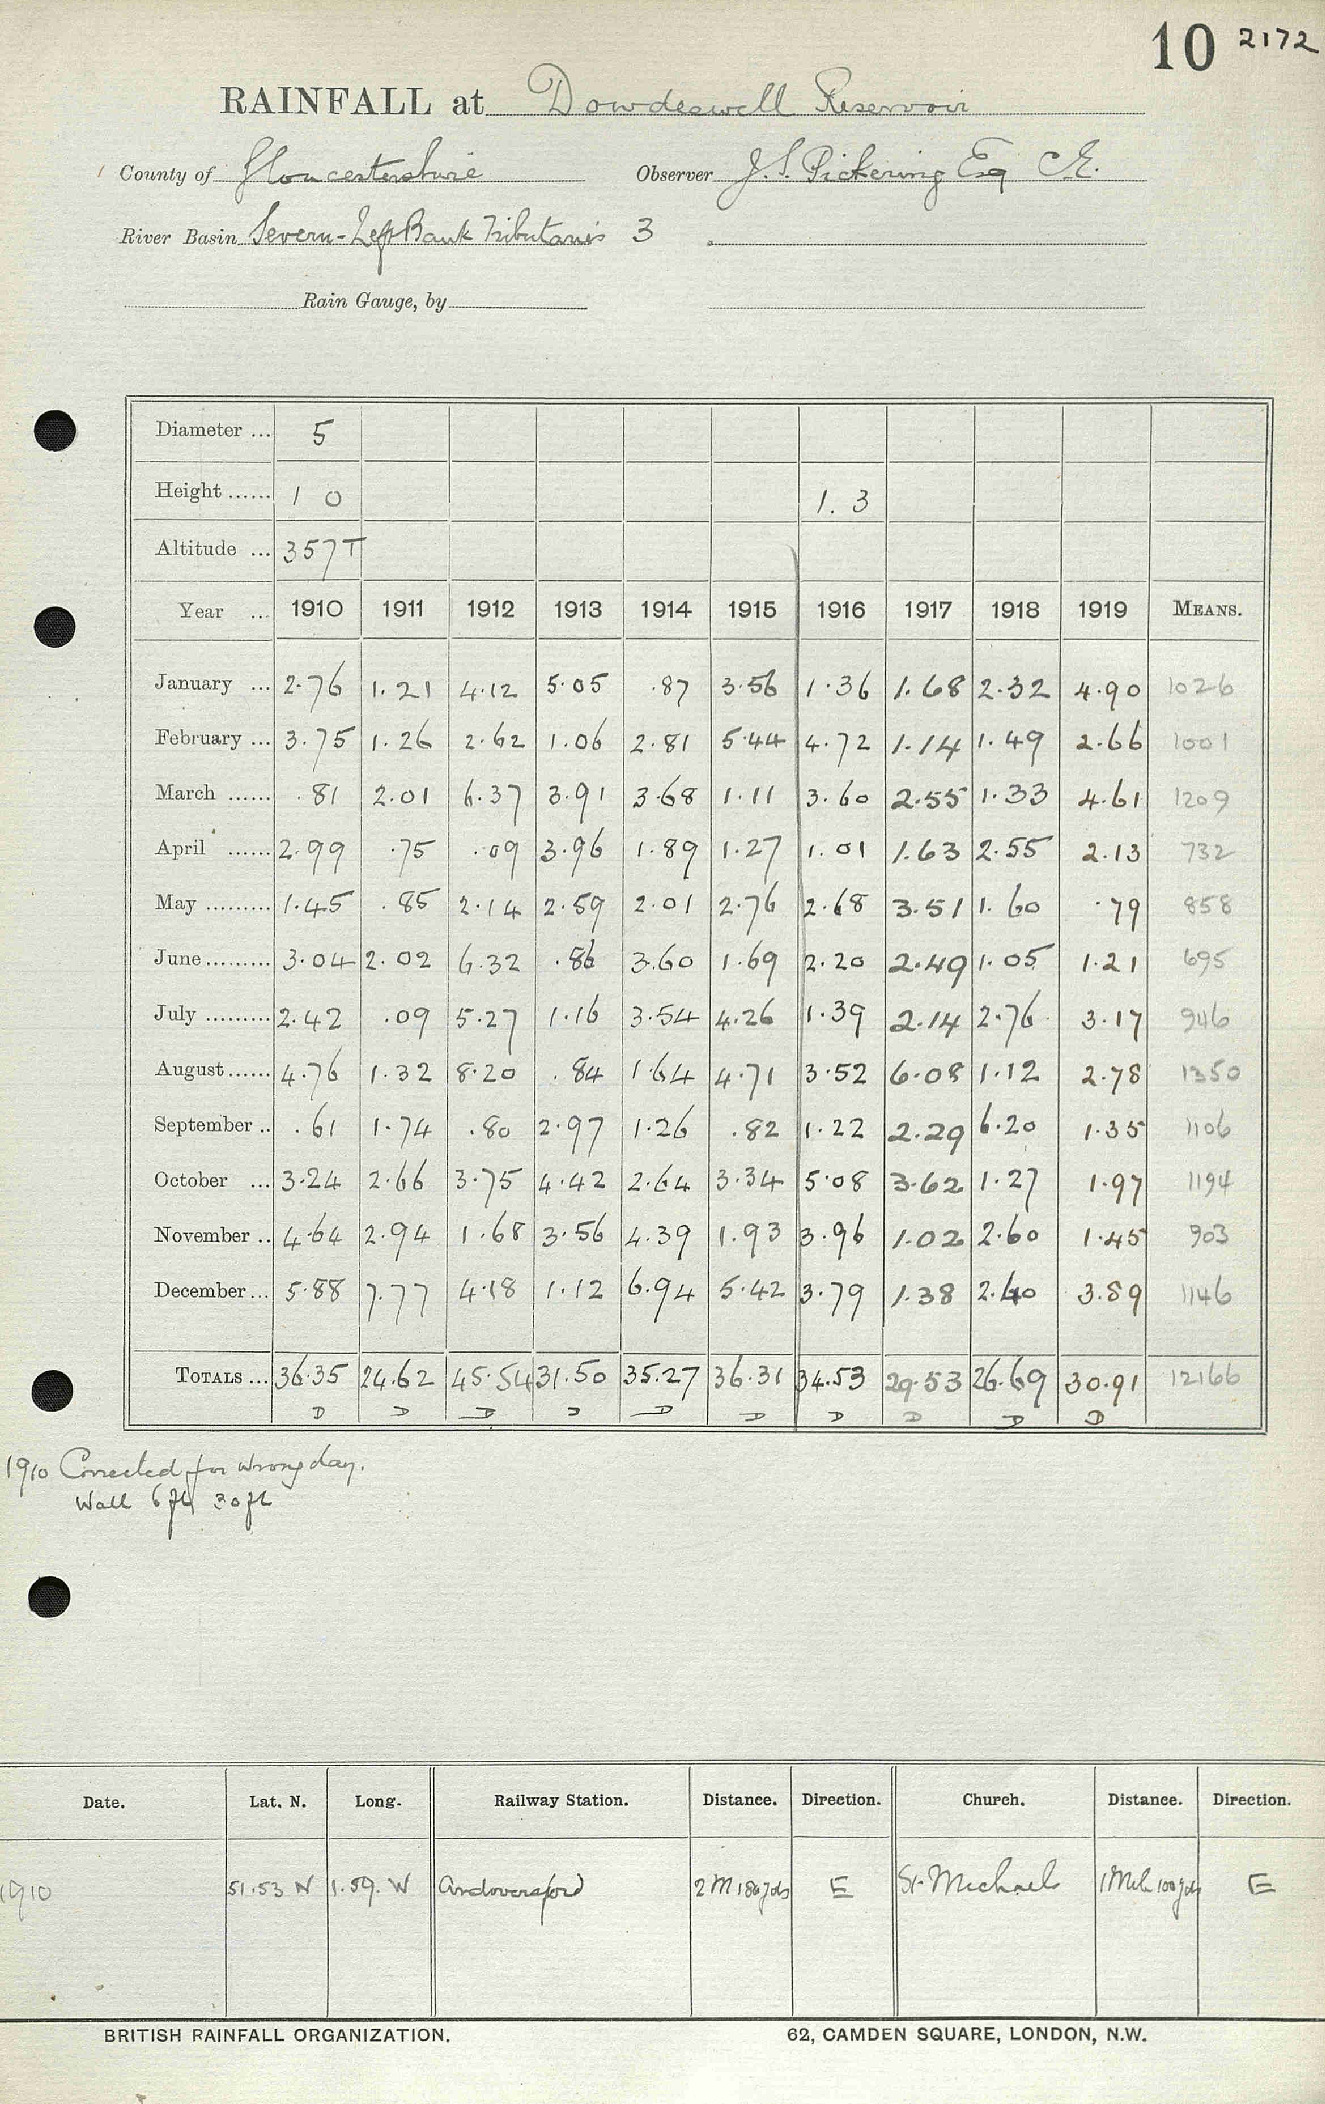 10 2172
RAINFALL at Dowdeswell Reservoir
County of Gloucestershire Observer J. S. Pickering Esq C.E.
River Basin Severn-Left Bank Tributaries 3
Rain Gauge, by
Diameter ... 5
Height ...... 1 0 1. 3
Altitude ... 357 T
Year ... 1910 1911 1912 1913 1914 1915 1916 1917 1918 1919 MEANS.
January ... 2.76 1.21 4.12 5.05 .87 3.56 1.36 1.68 2.32 4.90 1026
February ... 3.75 1.26 2.62 1.06 2.81 5.44 4.72 1.14 1.49 2.66 1001
March ...... .81 2.01 6.37 3.91 3.68 1.11 3.60 2.55 1.33 4.61 1209
April ...... 2.99 .75 .09 3.96 1.89 1.27 1.01 1.63 2.55 2.13 732
May ......... 1.45 .85 2.14 2.59 2.01 2.76 2.68 3.51 1.60 .79 858
June ......... 3.04 2.02 6.32 .86 3.60 1.69 2.20 2.49 1.05 1.21 695
July ......... 2.42 .09 5.27 1.16 3.54 4.26 1.39 2.14 2.76 3.17 946
August ...... 4.76 1.32 8.20 .84 1.64 4.71 3.52 6.08 1.12 2.78 1350
September .. .61 1.74 .80 2.97 1.26 .82 1.22 2.29 6.20 1.35 1106
October ... 3.24 2.66 3.75 4.42 2.64 3.34 5.08 3.62 1.27 1.97 1194
November .. 4.64 2.94 1.68 3.56 4.39 1.93 3.96 1.02 2.60 1.45 903
December ... 5.88 7.77 4.18 1.12 6.94 5.42 3.79 1.38 2.40 3.89 1146
TOTALS ... 36.35 24.62 45.54 31.50 35.27 36.31 34.53 29.53 26.69 30.91 12166
D D D D D D D D D D
1910 Corrected for wrong day.
Wall 6 ft 30 ft
Date. Lat. N. Long. Railway Station. Distance. Direction. Church. Distance. Direction.
1910 51.53 N 1.59. W Andoversford 2 M 186 yds E St. Michaels 1 Mile 100 yds E
BRITISH RAINFALL ORGANIZATION. 62, CAMDEN SQUARE, LONDON, N.W.